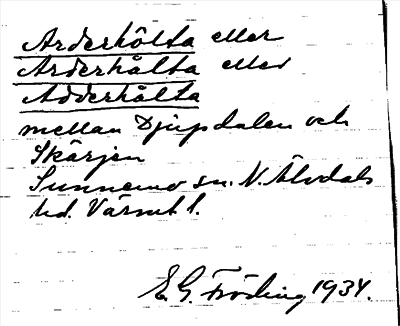 Arderhölta eller
Arderhålta eller
Adderhålta
mellan Djupdalen och
Skärjen
Sunnemo sn. N. Älvdals
hd. Värml.
E. G. Fröding 1934.